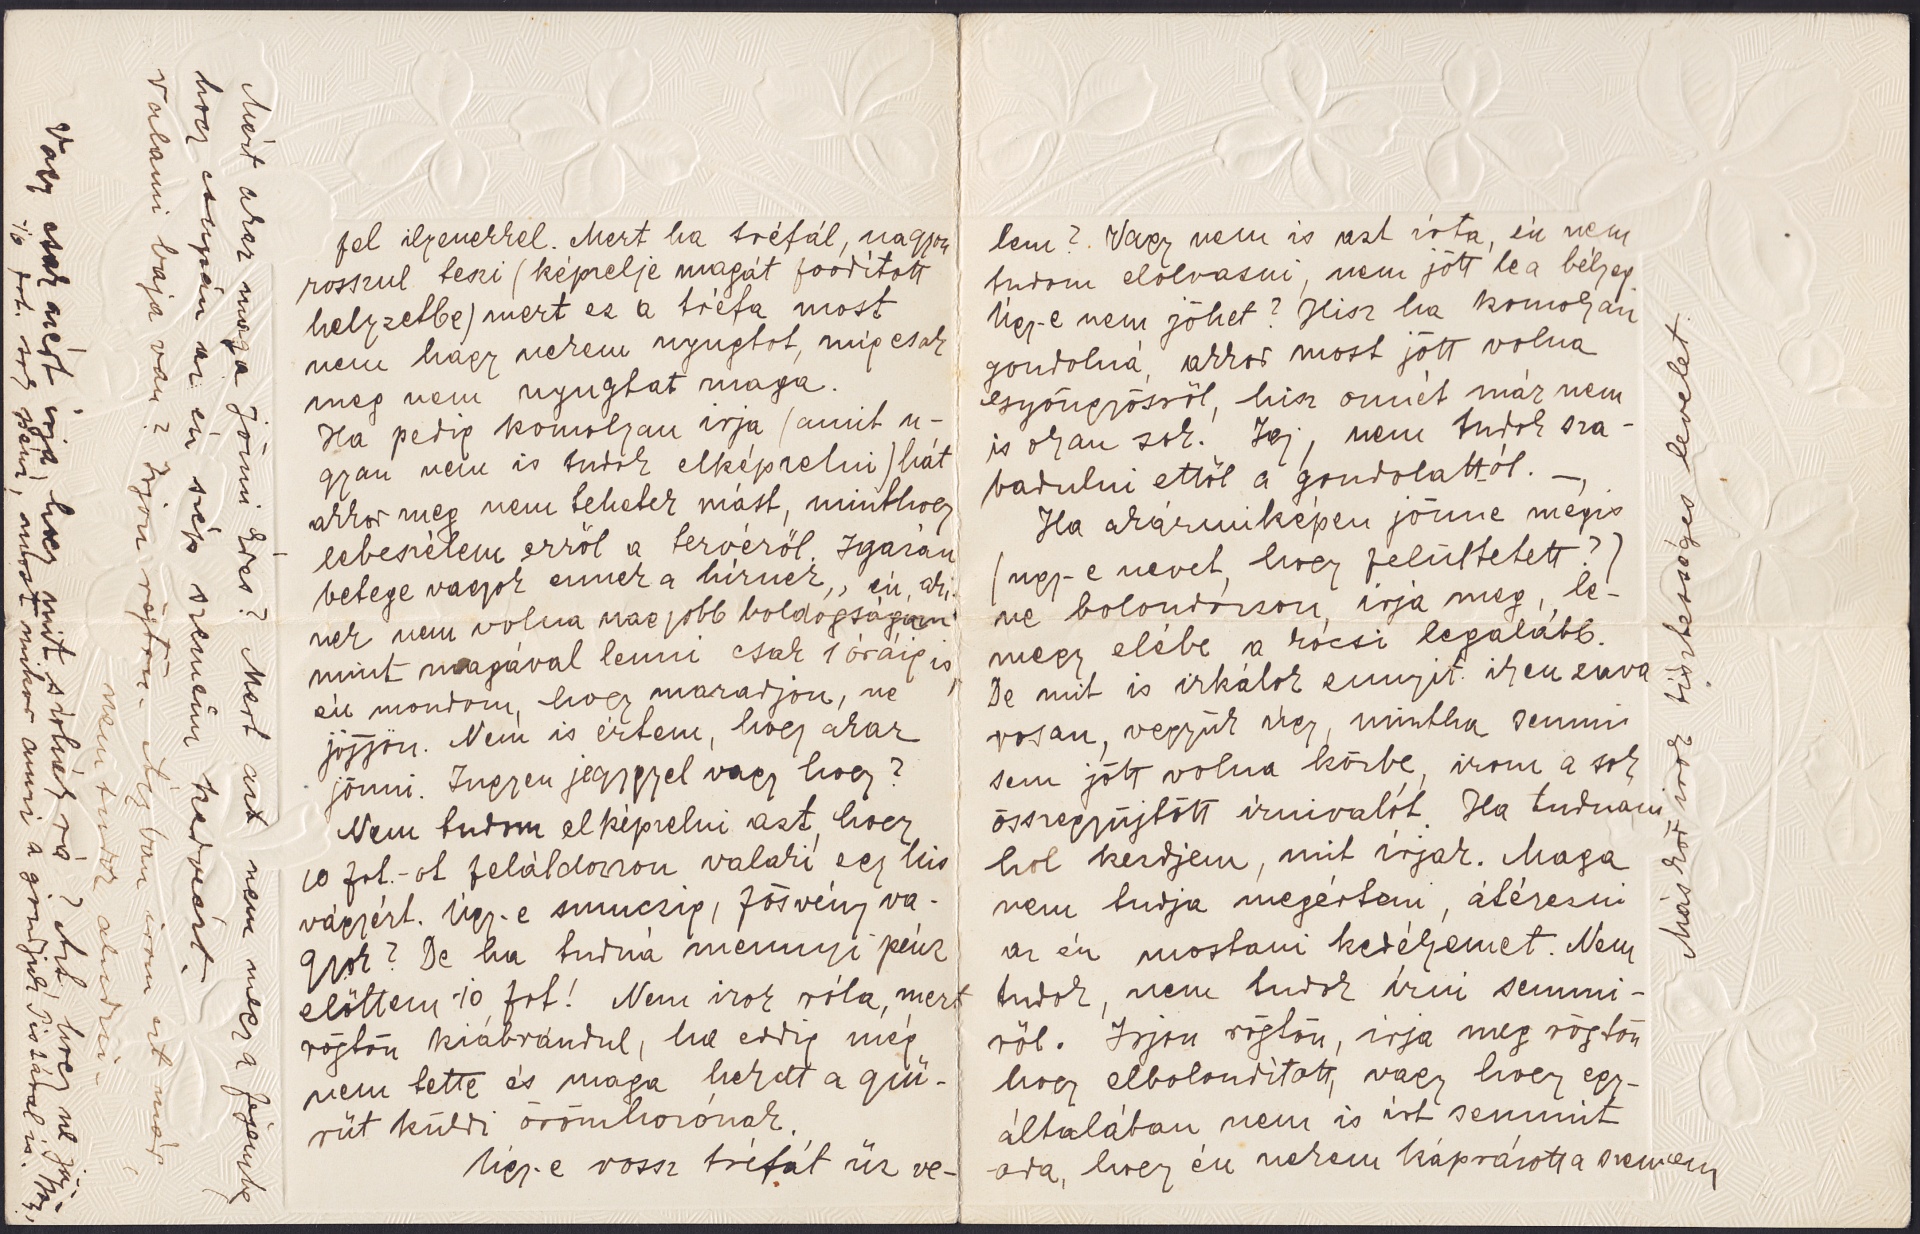 fel ilyenekkel. Mert ha tréfál, nagyon
rosszul teszi (képzelje magát fordított
helyzetbe) mert ez a tréfa most
nem hagy nekem nyugtot, míg csak
meg nem nyugtat maga.
Ha pedig komolyan irja (amit u-
gyan nem is tudok elképzelni) hát
akkor meg nem tehetek mást, minthogy
lebeszélem erről a tervéről. Igazán
betege vagyok ennek a hírnek, én, aki-
nek nem volna nagyobb boldogságom
mint magával lenni csak 1 óráig is,
én mondom, hogy maradjon, ne
jőjjön. Nem is értem, hogy akar
jönni. Ingyen jegygyel vagy hogy?
Nem tudom elképzelni azt, hogy
10 frt.-ot feláldozzon valaki egy kis
vágyért. Ugy-e smuczig, fösvény va-
gyok? De ha tudná mennyi pénz
előttem 10 frt! Nem irok róla, mert
rögtön kiábrándul, ha eddig még
nem tette és maga helyett a gyü-
rüt küldi örömhozónak.
Ugy-e rossz tréfát űz ve-
lem? Vagy nem is azt írta, én nem
tudom elolvasni, nem jött le a bélyeg
Ugy-e nem jöhet? Hisz ha komolyan
gondolná, akkor most jött volna
Gyöngyösről, hisz onnét már nem
is olyan sok. Igy, nem tudok sza-
badulni ettől a gondolattól. —,
Ha akármiképen jönne mégis
(ugy-e nevet, hogy felültetett?)
ne bolondózzon, irja meg, le-
megy elébe a kocsi legalább.
De mit is irkálok ennyit ilyen zava
rosan, vegyük úgy, mintha semmi
sem jött volna közbe, irom a sok
összegyüjtött írnivalót. Ha tudnám
hol kezdjem, mit írjak. Maga
nem tudja megérteni, átérezni
az én mostani kedélyemet. Nem
tudok, nem tudok írni semmi-
ről. Irjon rögtön, irja meg rögtön
hogy elbolondított, vagy hogy egy-
általában nem is írt semmit
oda, hogy én nekem káprázott a szemem
Máskor irok tisztességes levelet.
Mért akar maga jönni édes? Mert azt nem veszi a fejembe
hogy csupán az én szép szemeim kedvéért.
Valami baja van? Irjon rögtön. Ágyban irom ezt már
nem tudok aludni.
Vagy csak azért irja, hogy mit szólnék rá? Azt, hogy ne jöj-
jön,
10 frt. sok pénz, most mikor annyi a gondjuk